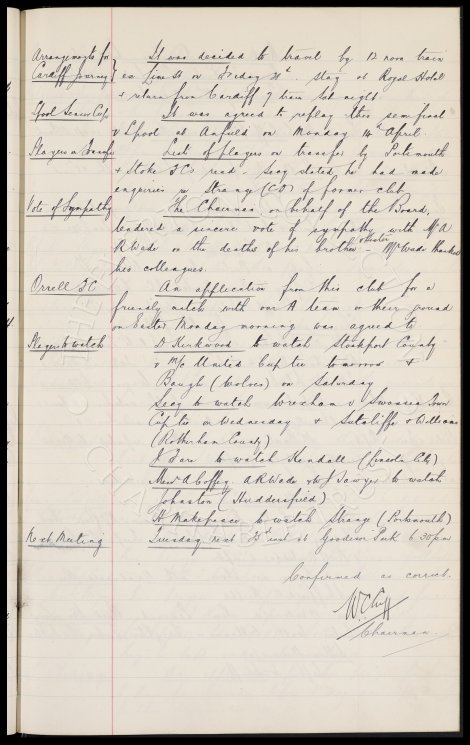 Arrangements for It was decided to travel by 12 noon train
Cardiff Journey ex Lime St on Friday 21st. stay at Royal Hotel
& return from Cardiff 7 train Sat night.
Lpool Senior Cup It was agreed to replay this semi final
v Lpool at Anfield on Monday 14th April.
Players on Transfer List of players on transfer by Portsmouth
& Stoke FCs read. Secy stated he had made
enquiries re Strange (CF) of former club.
Vote of Sympathy The Chairman on behalf of the Board,
tendered a sincere vote of sympathy with Mr A
R Wade on the deaths of his brother & sister – Mr Wade thanked
his colleagues.
Orrell FC An application from this club for a
friendly match with our A team on their ground
on Easter Monday morning was agreed to
Players to watch D Kirkwood to watch Stockport County
v M/c United Cup tie tomorrow &
Baugh (Wolves) on Saturday
Secy to watch Wrexham v Swansea Town
Cup tie on Wednesday & Sutcliffe & Williams
(Rotherham County)
J Fare to watch Kendall (Lincoln City)
Messrs A Coffey A R Wade & W J Sawyer to watch
Johnston (Huddersfield)
H Makepeace to watch Strange (Portsmouth)
Next Meeting Tuesday next inst at Goodison Park 6.30pm
Confirmed as correct.
W.C. Cuff
Chairman.